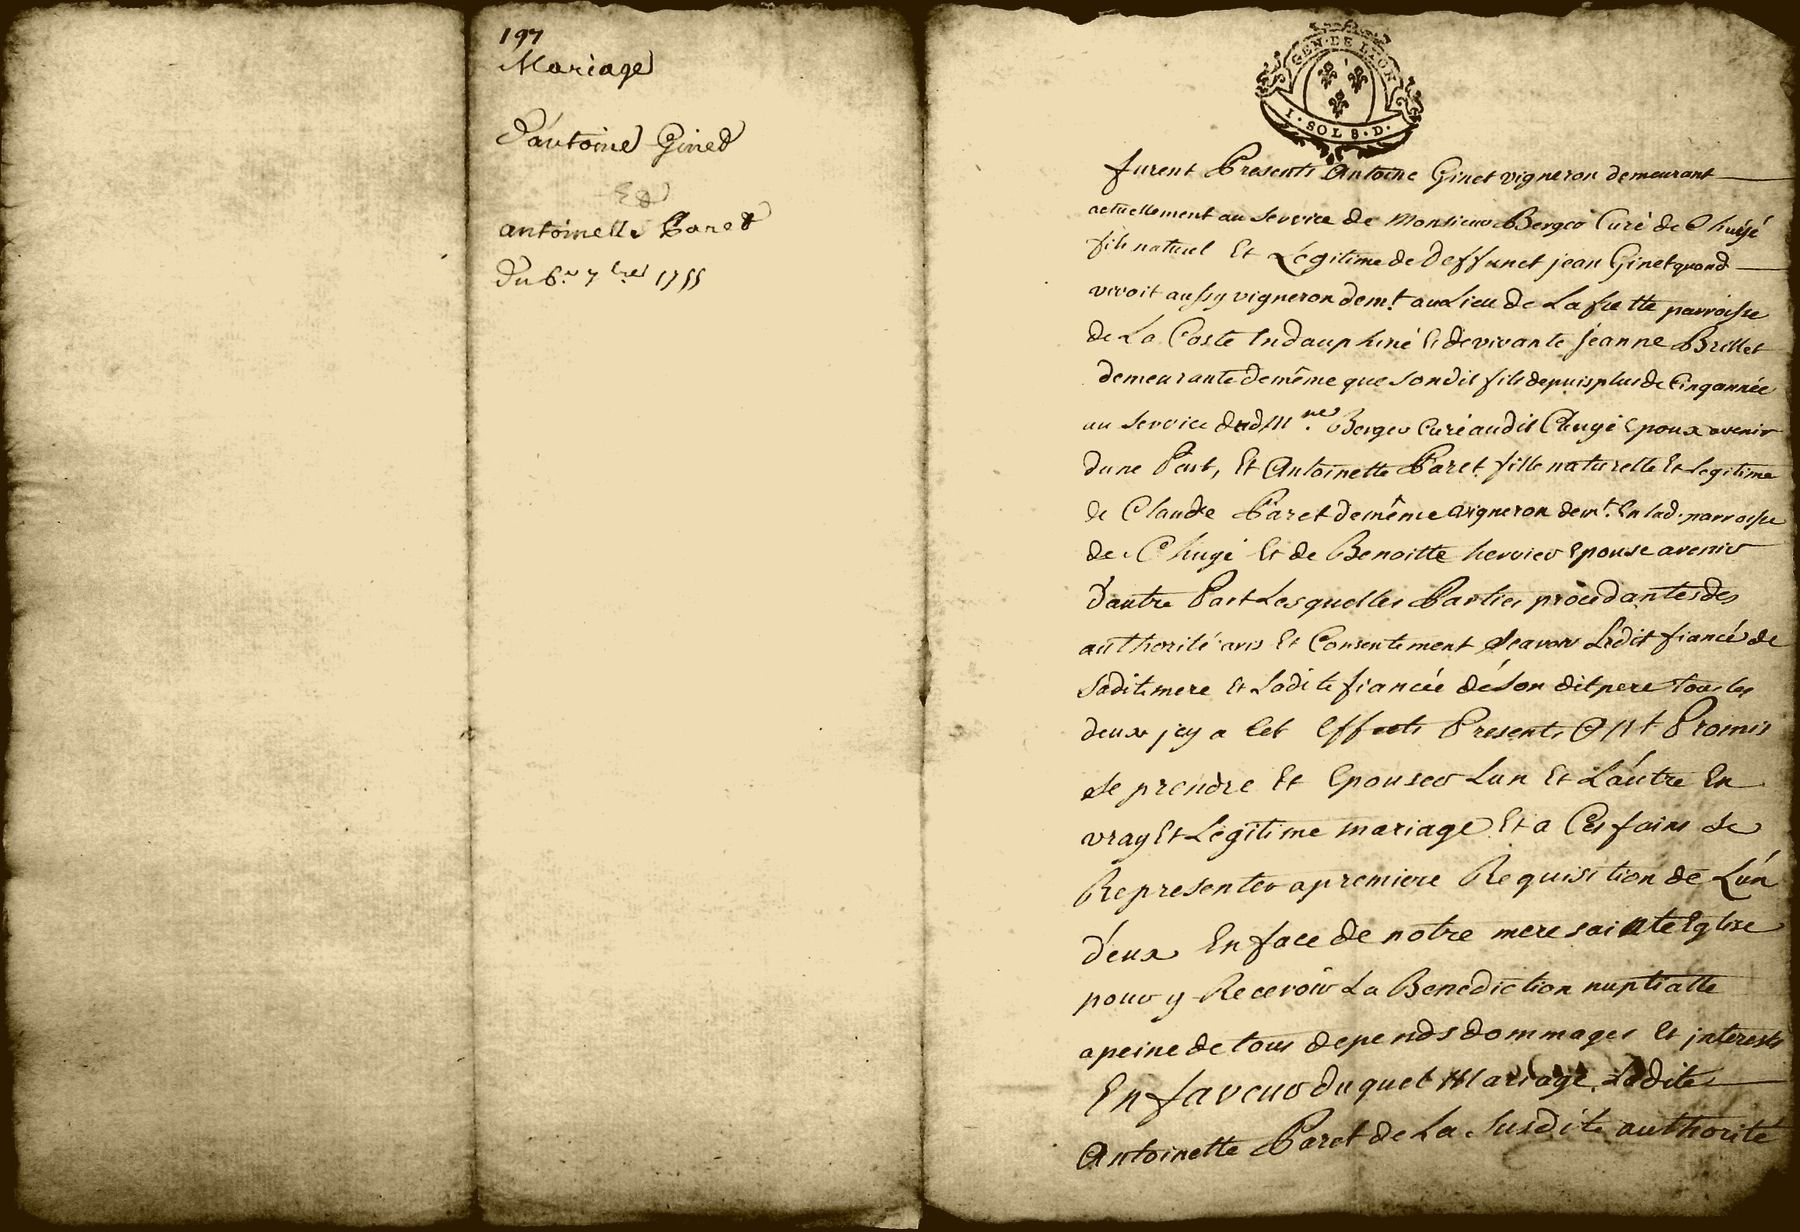 197
Mariage
D'antoine Ginet
Et
antoinette Paret
Du 6.e 7bre 1755
GEN·DE LYON
I·SOL 8·D·
furent Presents Antoine Ginet vigneron demeurant
actuellement au Service de Monsieur Berger Curé de
fils naturel Et Légitime de Deffunct jean Ginet quand
vivoit aussy vigneron demt. au Lieu de La frette parroisse
de La Coste En dauphiné Et de vivante jéanne Brillet
demeurante demême que Son dit fils depuis plus de Cinq année
au Service dud Mre. Berger Curé audit Chugé Epoux avenir
dune Part, Et Antoinette Paret fille naturelle Et Legitime
de Claude Paret demême vigneron demt. En lad. parroisse
de Chugé Et de Benoitte hervier Epouse avenir
D'autre Part Lesquelles Parties procédantes des
authorité avis Et Consentement Sçavoir Ledit fiancé de
Sadite mere Et Ladite fiancée dé Son dit pere tous les
deux jcy a Cet Effects Presents Ont Promis
de prendre Et Epouser Lun Et L'autre En
vray Et Légitime mariage Et a Ces fains se
Representer apremiere Requisition de L'un
d'eux En face de notre mere sainte Eglise
pour y Recevoir La Benediction nuptialle
apeine de tous depends dommages Et jnterests
En faveur duquel Mariage Ladite
Antoinette Paret de La Susdite authorité